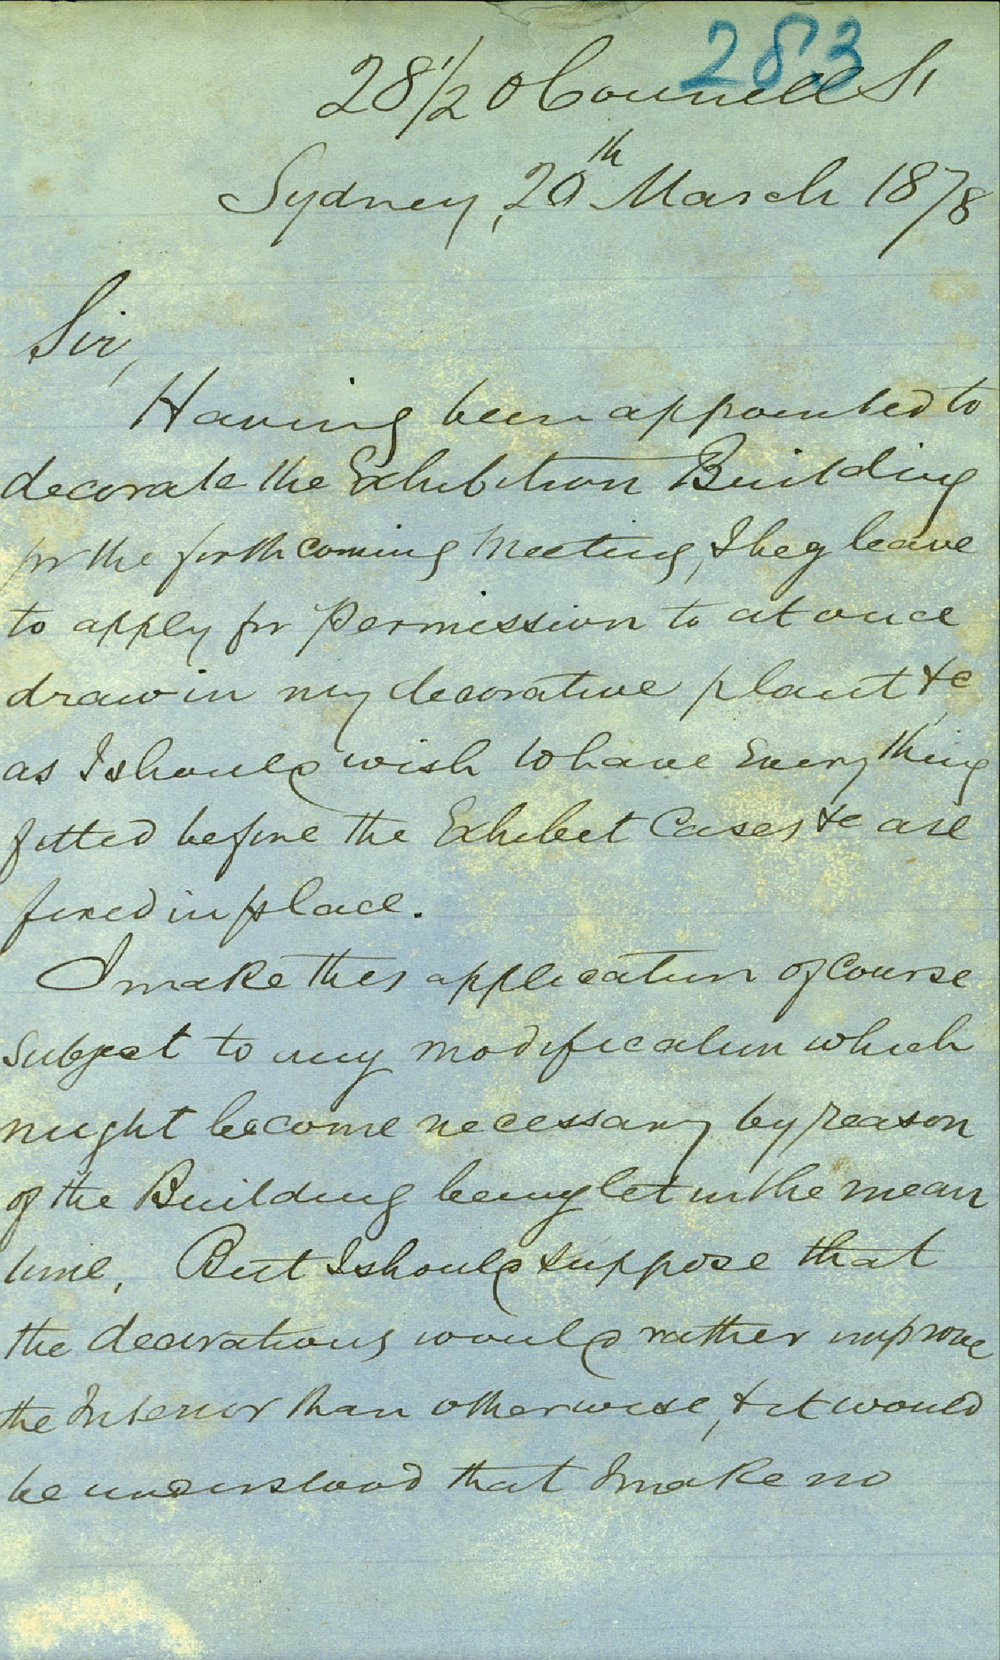 283
28 1/2 O'Connell St
Sydney, 20th March 1878
Sir,
Having been appointed to
decorate the Exhibition Building
for the forthcoming Meeting, I beg leave
to apply for permission to at once
draw in my decorative plant &c,
as I should wish to have Every thing
fitted before the Exhibit Cases &c are
fixed in place.
I make this application of Course
subject to any modification which
might become necessary by reason
of the Building being let in the mean
time, But I should suppose that
the decorations would rather improve
the Interior than otherwise, & it would
be understood that I make no